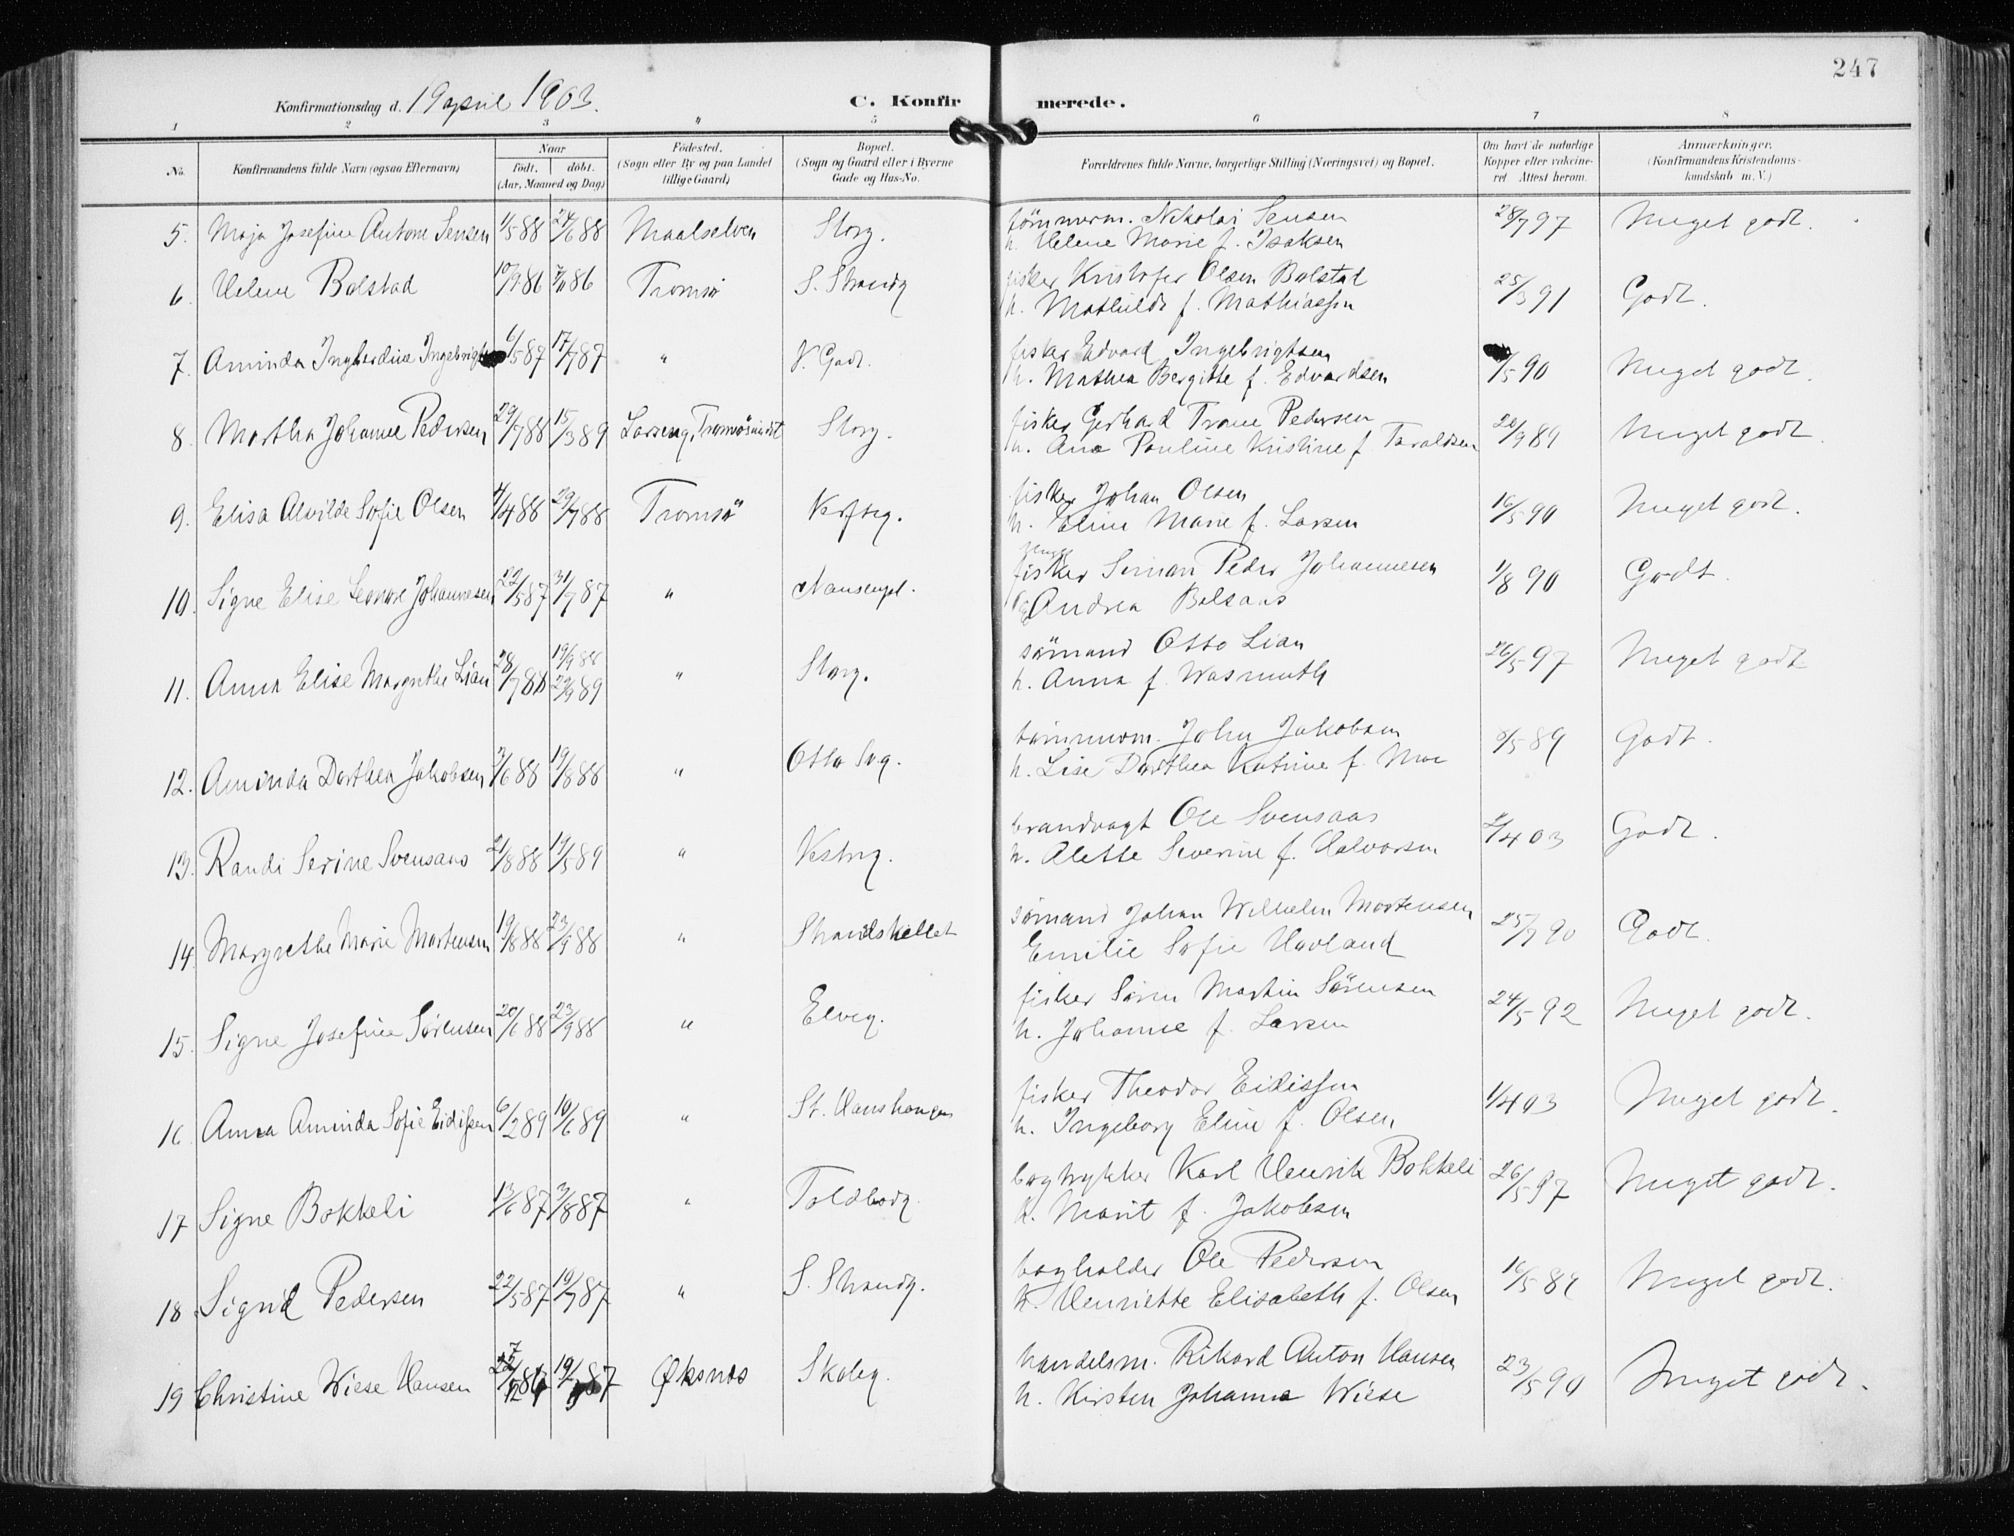 247
Konfirmationsdag d. 19 april 1903.
C. Konfirmerede.
1 2 3 " 5 6 7 8
No. Konfirmandens fulde Navn (ogsaa Efternavn) Naar født. døbt. (Aar, Maaned og Dag) Fødested. (Sogn eller By og paa Landet tillige Gaard) Bopæl. (Sogn og Gaard eller i Byerne Gade og Hus-No. Forældrenes fulde Navne, borgerlige Stilling (Næringsvei) og Bopæl. Om havt de naturlige Kopper eller vakcineret. Attest herom. Anmærkninger. (Konfirmandens Kristendomskundskab m. V.)
5. Maja Josefine Antone Jensen 1/5 88 24/6 88 Maalselven Storg. tömmerm. Nikolai Jensen 28/7 97 Meget godt.
h. Helene Marie f. Isaksen
6 Helene Bolstad 10/9 86 86 Tromsö S. Strandg fisker Kristofer Olsen Bolstad 25/3 91 Godt.
h. Mathilde f. Mathiassen
7. Aminda Ingbordine 6/5 87 17/7 87 " fisker Edvard Ingebrigtsen /5 90 Meget godt.
h. Mathea Bergitte f. Edvardsen
8. Martha Johanne Pedersen 29/7 88 15/3 89 Storg. fisker Gerhard Trane Pedersen 20/9 89 Meget godt.
h. Ane Pauline Kristine f. Taraldsen
9. Elisa Alvilde Sofie Olsen 4/4 88 29/7 88 Tromsö fisker Johan Olsen 16/5 90 Meget godt.
h. Eline Marie f. Larsen
10. Signe Elise Leonore Johannesen 22/5 87 31/7 87 " Nansenpl. fisker Simon Peder Johannesen 1/8 90 Godt.
Andrea Balsaas
11. Anna Elise Margrethe Lian 28/7 88 19/9 88 29/9 89 " Storg. sömand Otto Lian 26/5 97 Meget godt
h. Anna f. Wasmuth
12. Aminda Dorthea Jakobsen 3/6 88 19/8 88 " Otto Svg. tömmerm. John Jakobsen /5 89 Godt.
h. Lise Dorthea Katrine f. Moe
13. Randi Serine Svensaas 21/8 88 19/5 89 " Vestrg. brandvagt Ole Svensaas 2/4 03 Godt.
h. Alette Severine f. Halvorsen
14 Margrethe Marie Mortensen 19/8 88 23/9 88 " Strandskillet sømand Johan Wilhelm Mortensen 25/7 90 Godt.
Emilie Sofie Havland
15. Signe Josefine Sørensen 20/6 88 23/9 88 " Elveg. fisker Sören Martin Sörensen 24/5 92 Meget godt.
h. Johanne f. Larsen
16 Anna Aminda Sofie Eidissen 6/2 89 10/6 89 " St. Hanshaugen fisker Theodor Eidissen 1/4 03 Meget godt.
h. Ingeborg Eline f. Olsen
17 Signe Bokkeli 13/6 87 3/8 87 " Toldbodg. bogtrykker Karl Henrik Bokkeli 26/5 97 Meget godt.
h. Marit f. Jakobsen
18. Sigrid Pedersen 22/5 87 19/7 87 " S. Strandg. bogholder Ole Pedersen 16/5 89 Meget godt.
h. Henriette Elisabeth f. Olsen
19 Christine Wiese Hansen 87 Øksnes Skoleg. handelsm. Rikard Anton Hansen 23/5 90 Meget godt.
h. Kirsten Johanna Wiese